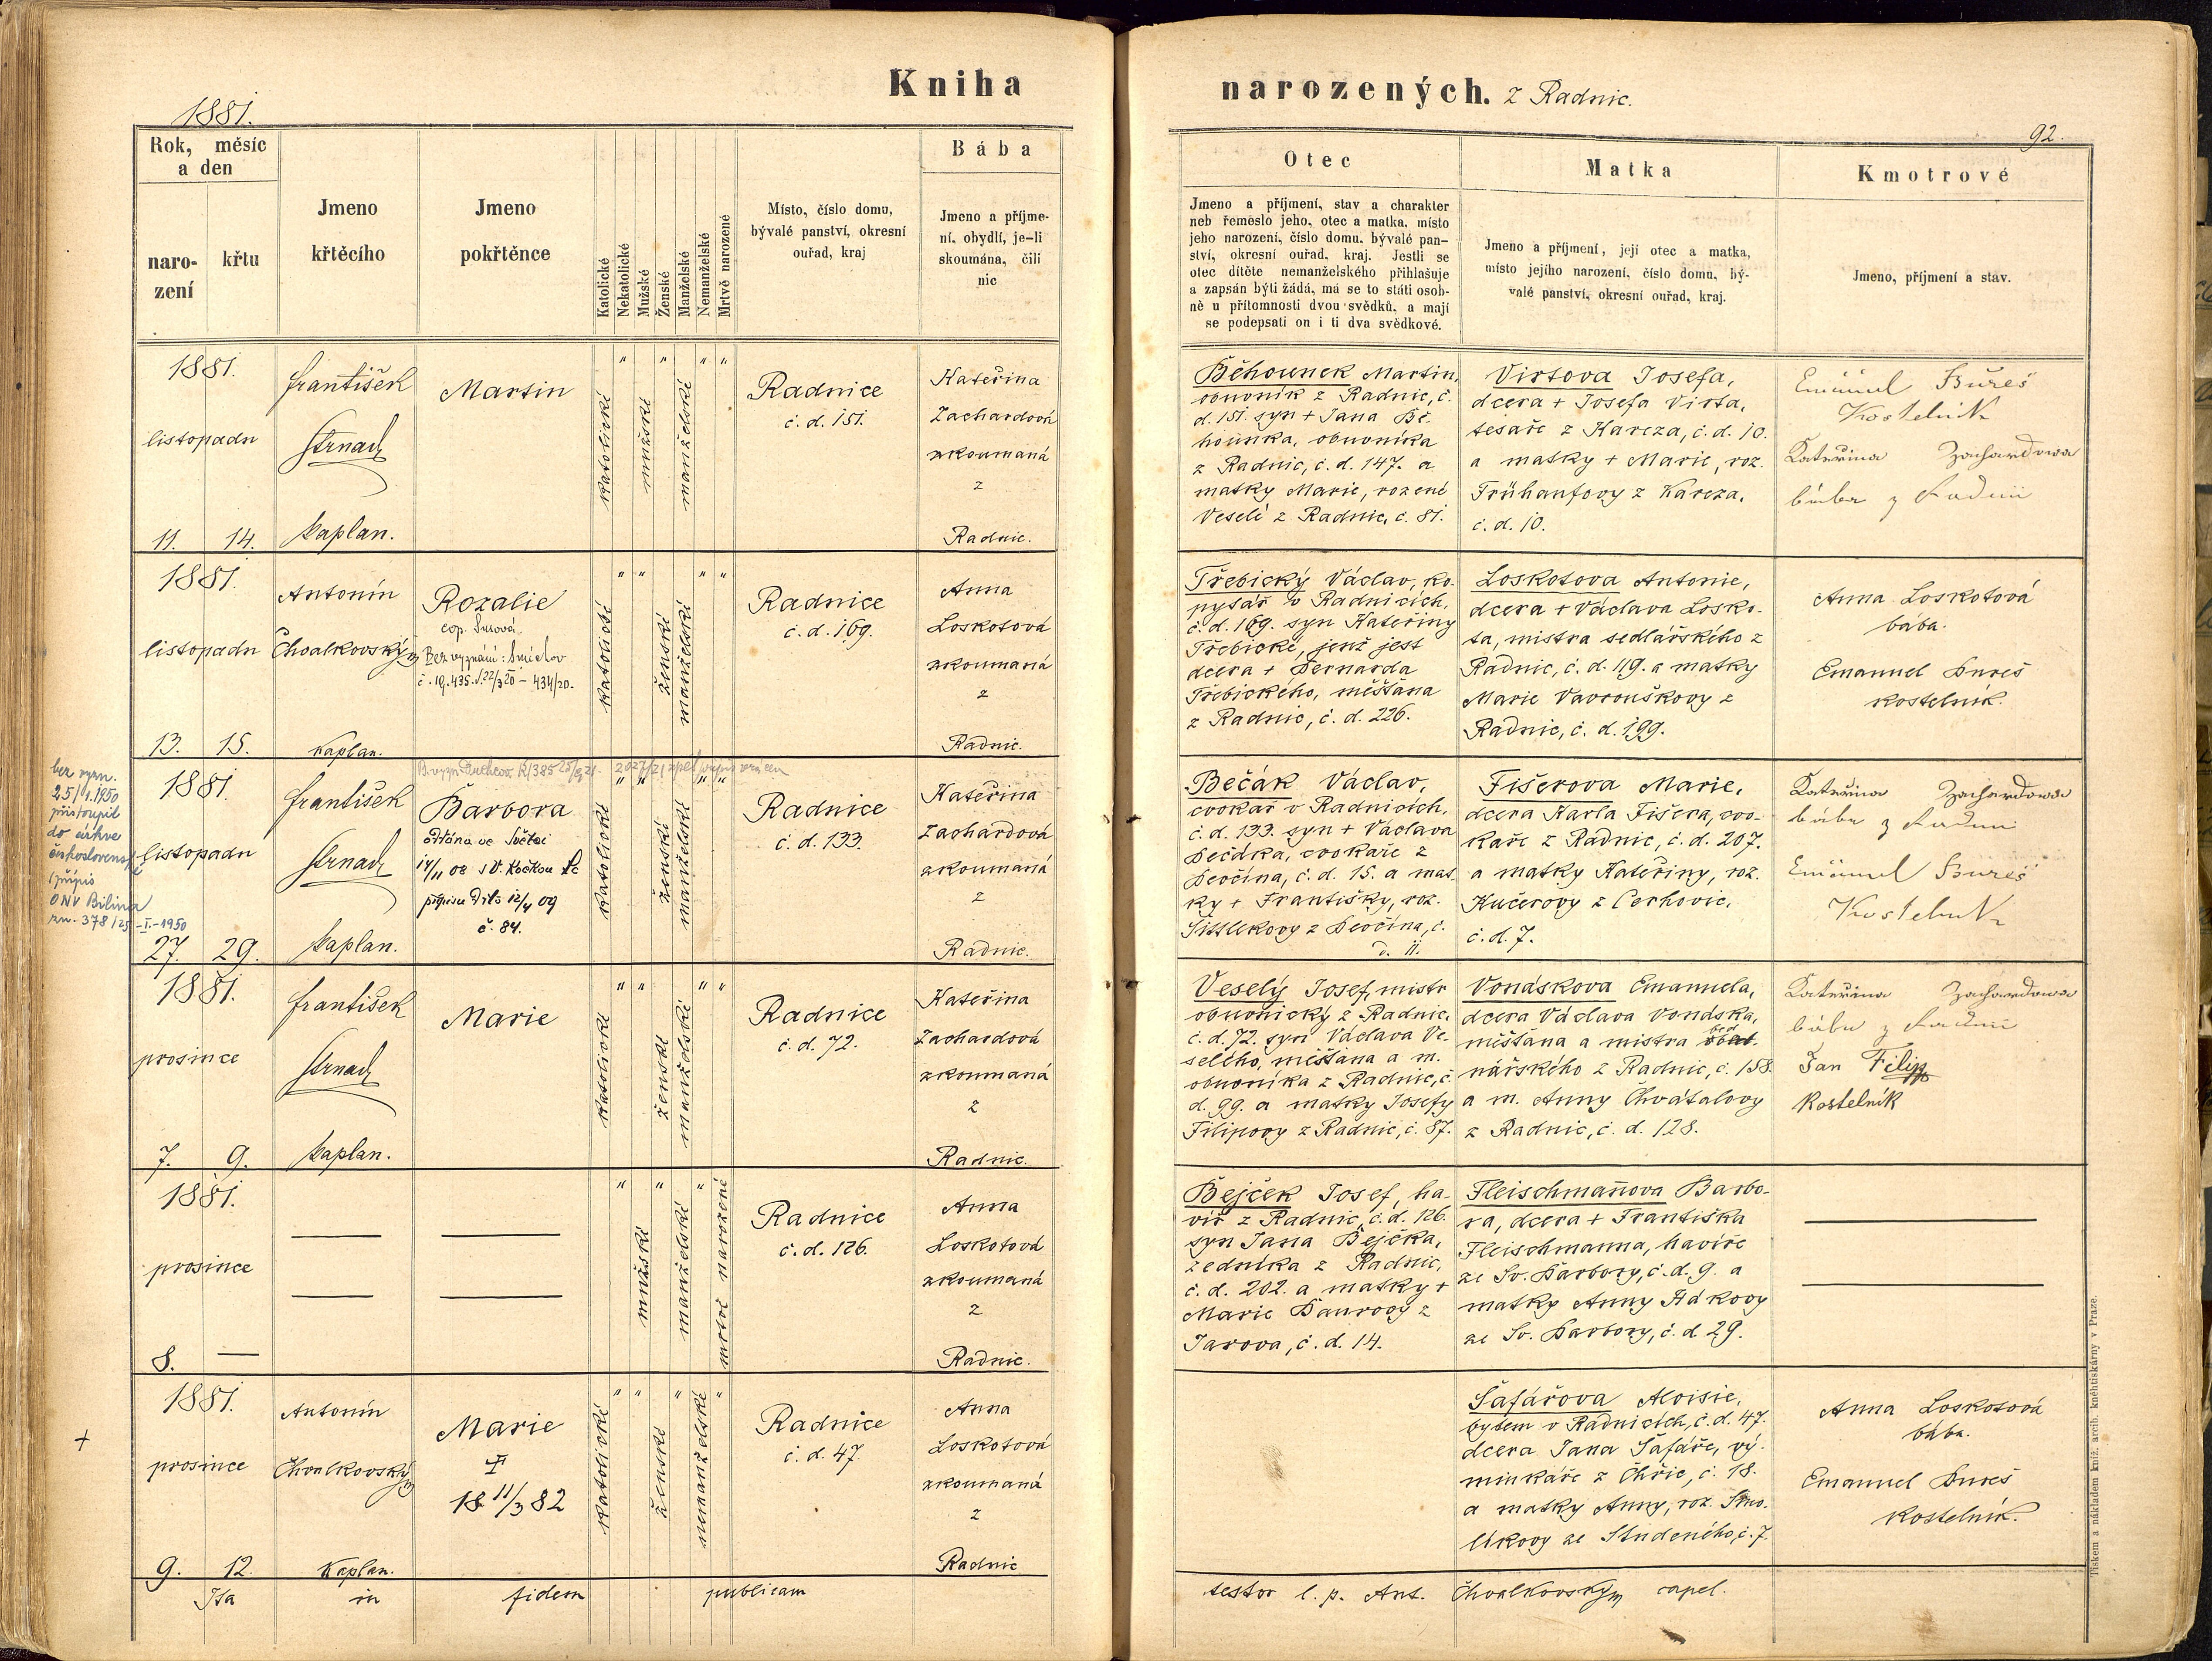 Kniha
narozených. z Radnic.
1881.
92.
Rok, měsíc
a den
naro-
zení
křtu
Jmeno
křtěcího
Jmeno
pokřtěnce
Katolické
Nekatolické
Mužské
Ženské
Manželské
Nemanželské
Mrtvě narozené
Místo, číslo domu,
bývalé panství, okresní
ouřad, kraj
Bába
Jmeno a příjme-
ní, obydlí, je-li
skoumána, čili
nic
Otec
Jmeno a příjmení, stav a charakter
neb řemeslo jeho, otec a matka, místo
jeho narození, číslo domu, bývalé pan-
ství, okresní ouřad, kraj. Jestli se
otec dítěte nemanželského přihlašuje
a zapsán býti žádá, má se to státi osob-
ně u přítomnosti dvou svědků, a mají
se podepsati on i ti dva svědkové.
Matka
Jmeno a příjmení, její otec a matka,
místo jejího narození, číslo domu, bý-
valé panství, okresní ouřad, kraj.
Kmotrové
Jmeno, příjmení a stav.
1881.
listopadu
11. 14.
František
Strnad
kaplan.
Martin
katolické
" mužské " manželské " "
Radnice
č. d. 151.
Kateřina
Zachardová
zkoumaná
z
Radnic.
Běhounek Martin,
obuvník z Radnic, č.
d. 151. syn + Jana Bě-
hounka, obuvníka
z Radnic, č. d. 147. a
matky Marie, rozené
Veselé z Radnic, č. 81.
Virtova Josefa,
dcera + Josefa Virta,
tesaře z Kareza, č. d. 10.
a matky + Marie, roz.
Frühaufovy z Kareza,
č. d. 10.
Emanuel Bureš
Kostelník
Kateřina Zachardowa
bába z Radnic
1881.
listopadu
13. 15.
Antonín
Chvalkovský
kaplan.
Rozalie
Bez vyznání: Smíchov
katolické
" " ženské manželské " "
Radnice
č. d. 169.
Anna
Loskotová
zkoumaná
z
Radnic.
Třebický Václav, ko-
pytář v Radnicích,
č. d. 169. syn Kateřiny
Třebické, jenž jest
dcera + Bernarda
Třebického, měšťana
z Radnic, č. d. 226.
Loskotova Antonie,
dcera + Václava Losko-
ta, mistra sedlářského z
Radnic, č. d. 119. a matky
Marie Vavrouškovy z
Radnic, č. d. 199.
Anna Loskotová
bába.
Emanuel Bureš
kostelník.
bez vyzn.
25/1.1950
přistoupil
do církve
československé
/přípis
ONV Bílina
zn. 378/25-I.-1950
1881.
listopadu
27. 29.
František
Strnad
kaplan.
Barbora
oddána ve Světci
č. 84.
katolické
" " ženské manželské " "
Radnice
č. d. 133.
Kateřina
Zachardová
zkoumaná
z
Radnic.
Bečák Václav,
cvokař v Radnicích,
č. d. 133. syn + Václava
Bečáka, cvokaře z
Bevčína, č. d. 15. a mat-
ky + Františky, roz.
z Bevčína, č.
d. 11.
Fišerova Marie,
dcera Karla Fišera, cvo-
kaře z Radnic, č. d. 207.
a matky Kateřiny, roz.
Kučerovy z Cerhovic,
č. d. 7.
Kateřina Zachardowa
bába z Radnic
Emanuel Bureš
Kostelník
1881.
prosince
7. 9.
František
Strnad
kaplan.
Marie
katolické
" " ženské manželské " "
Radnice
č. d. 72.
Kateřina
Zachardová
zkoumaná
z
Radnic.
Veselý Josef, mistr
obuvnický z Radnic,
č. d. 72. syn Václava Ve-
selého, měšťana a m.
obuvníka z Radnic, č.
d. 99. a matky Josefy
Filipovy z Radnic, č. 87.
Vonáskova Emanuela,
dcera Václava Vonáska,
měšťana a mistra bed-
nářského z Radnic, č. 158.
a m. Anny Chvátalovy
z Radnic, č. d. 128.
Kateřina Zachardowa
bába z Radnic
Jan Filip
Kostelník
1881.
prosince
8. —
mužské
manželské
mrtvě narozené
Radnice
č. d. 126.
Anna
Loskotová
zkoumaná
z
Radnic.
Bejček Josef, ha-
víř z Radnic, č. d. 126.
syn Jana Bejčka,
zedníka z Radnic,
č. d. 202. a matky +
Marie Baurovy z
Jarova, č. d. 14.
Fleischmanova Barbo-
ra, dcera + Františka
Fleischmanna, havíře
ze Sv. Barbory, č. d. 9. a
matky Anny Hákovy
ze Sv. Barbory, č. d. 29.
1881.
prosince
9. 12.
Antonín
Chvalkovský
Kaplan.
Marie
18 11/3 82
katolické
" " ženské " nemanželské "
Radnice
č. d. 47.
Anna
Loskotová
zkoumaná
z
Radnic
Šafářova Aloisie,
bytem v Radnicích, č. d. 47.
dcera Jana Šafáře, vý-
minkáře z Chříc, č. 18.
a matky Anny, roz. Smo-
líkovy ze Studeného, č. 7.
Anna Loskotová
bába.
Emanuel Bureš
kostelník.
Ita in fidem publicam
testor l. p. Ant. Chvalkovský capel.
Tiskem a nákladem kníž. arcib. kněhtiskárny v Praze.